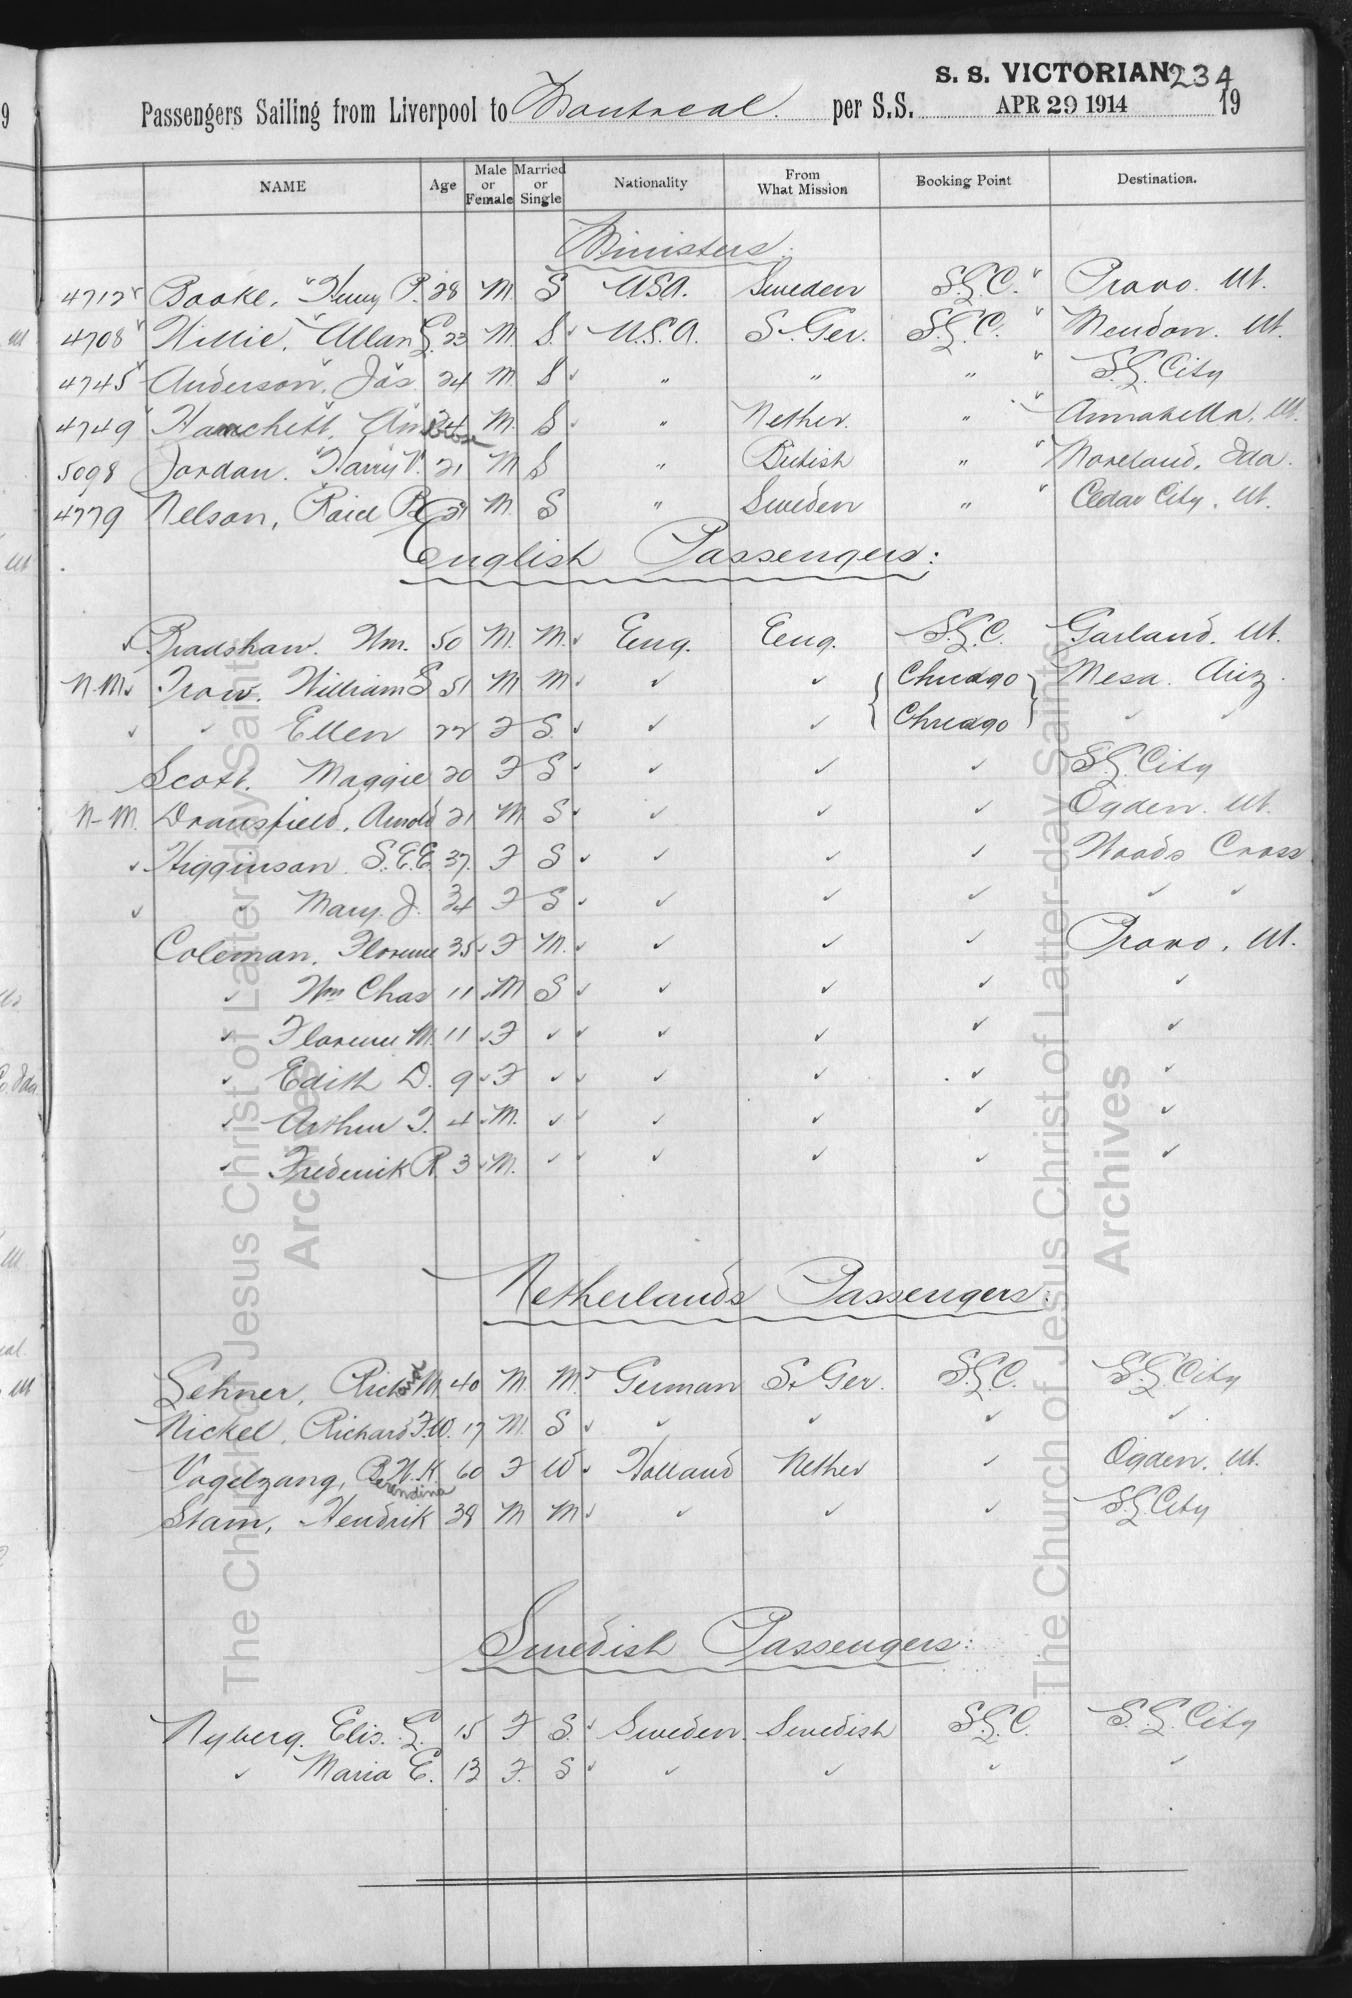 S. S. VICTORIAN 234
Passengers Sailing from Liverpool to Montreal. per S.S. APR 29 1914 19
NAME Age Male or Female Married or Single Nationality From What Mission Booking Point Destination.
Ministers.
4712 Booke, Henry P. 28 M. S USA. Sweden S.L.C. " Provo. Ut.
4708 Willie, Allan G. 23 M. S. U.S.A. S. Ger. S.L.C. " Mendon. Ut.
4745 Anderson, Jas. 24 M. S " " " " S.L. City
4749 Hanchett, Ambrose 24 M. S " Nether. " " Annabella, Ut.
5098 Jordan. Harry V. 21 M S " British " " Moreland, Ida.
4779 Nelson, M. S " Sweden " " Cedar City, Ut.
English Passengers:
Bradshaw. Wm. 50 M. M. Eng. Eng. S.L.C. Garland. Ut.
N.M. Trow. William S 51 M M. ✓ ✓ { Chicago } Mesa. Ariz.
✓ ✓ Ellen 22 F S. ✓ ✓ { Chicago } ✓ ✓
Scott. Maggie 20 F S ✓ ✓ ✓ S.L. City
N-M. Dransfield, Arnold 21 M S ✓ ✓ ✓ Ogden. Ut.
✓ Higginson S.E.E. 37. F S ✓ ✓ ✓ Woods Cross
✓ ✓ Mary. J. 34 F S ✓ ✓ ✓ ✓ ✓
Coleman, Florence 35 F M. ✓ ✓ ✓ Provo, Ut.
✓ Wm Chas 11 M S ✓ ✓ ✓ ✓
✓ Florence M. 11 F ✓ ✓ ✓ ✓ ✓
✓ Edith D. 9 F ✓ ✓ ✓ ✓ ✓
✓ Arthur T. 4 M. ✓ ✓ ✓ ✓ ✓
✓ Frederick R. 3 M. ✓ ✓ ✓ ✓ ✓
Netherlands Passengers:
Lehner, Richard M. 40 M. M. German S. Ger. S.L.C. S.L. City
Nickel, Richard F.W. 17 M. S ✓ ✓ ✓ ✓
Vogelzang, Berendina W. K. 60 F W Holland Nether ✓ Ogden. Ut.
Stam, Hendrik 38 M M ✓ ✓ ✓ S.L. City
Swedish Passengers:
Nyberg. Elis. G. 15 F S. Sweden. Swedish S.L.C. S.L. City
✓ Maria E. 13 F. S ✓ ✓ ✓ ✓
The Church of Jesus Christ of Latter-day Saints
Archives
The Church of Jesus Christ of Latter-day Saints
Archives